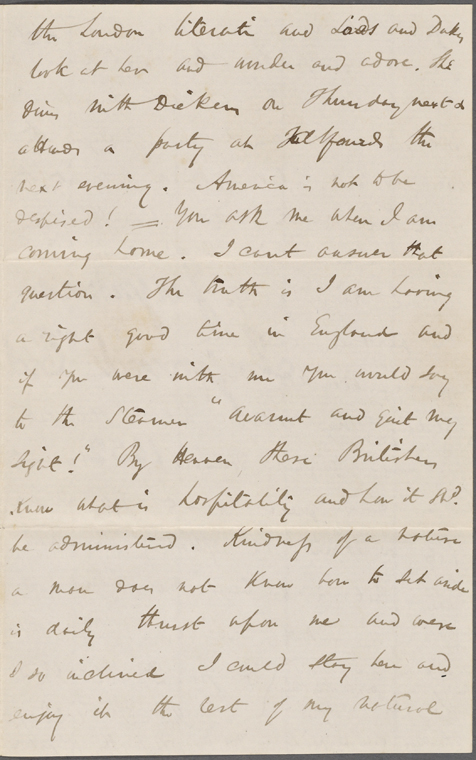 the London literati and Lords and Dukes
look at her and wonder and adore. She
dines with Dickens on Thursday next &
attends a party at Talfourds the
next evening. America is not to be
despised! = You ask me when I am
coming home. I cant answer that
question. The truth is I am having
a right good time in England and
if you were with me you would say
to the Steamer "avaunt and quit my
sight!" By Heaven, these Britishers
know what is hospitality and how it shd.
be administered. Kindness of a nature
a man does not know how to set aside
is daily thrust upon me and were
I so inclined I could stay here and
enjoy it the rest of my natural